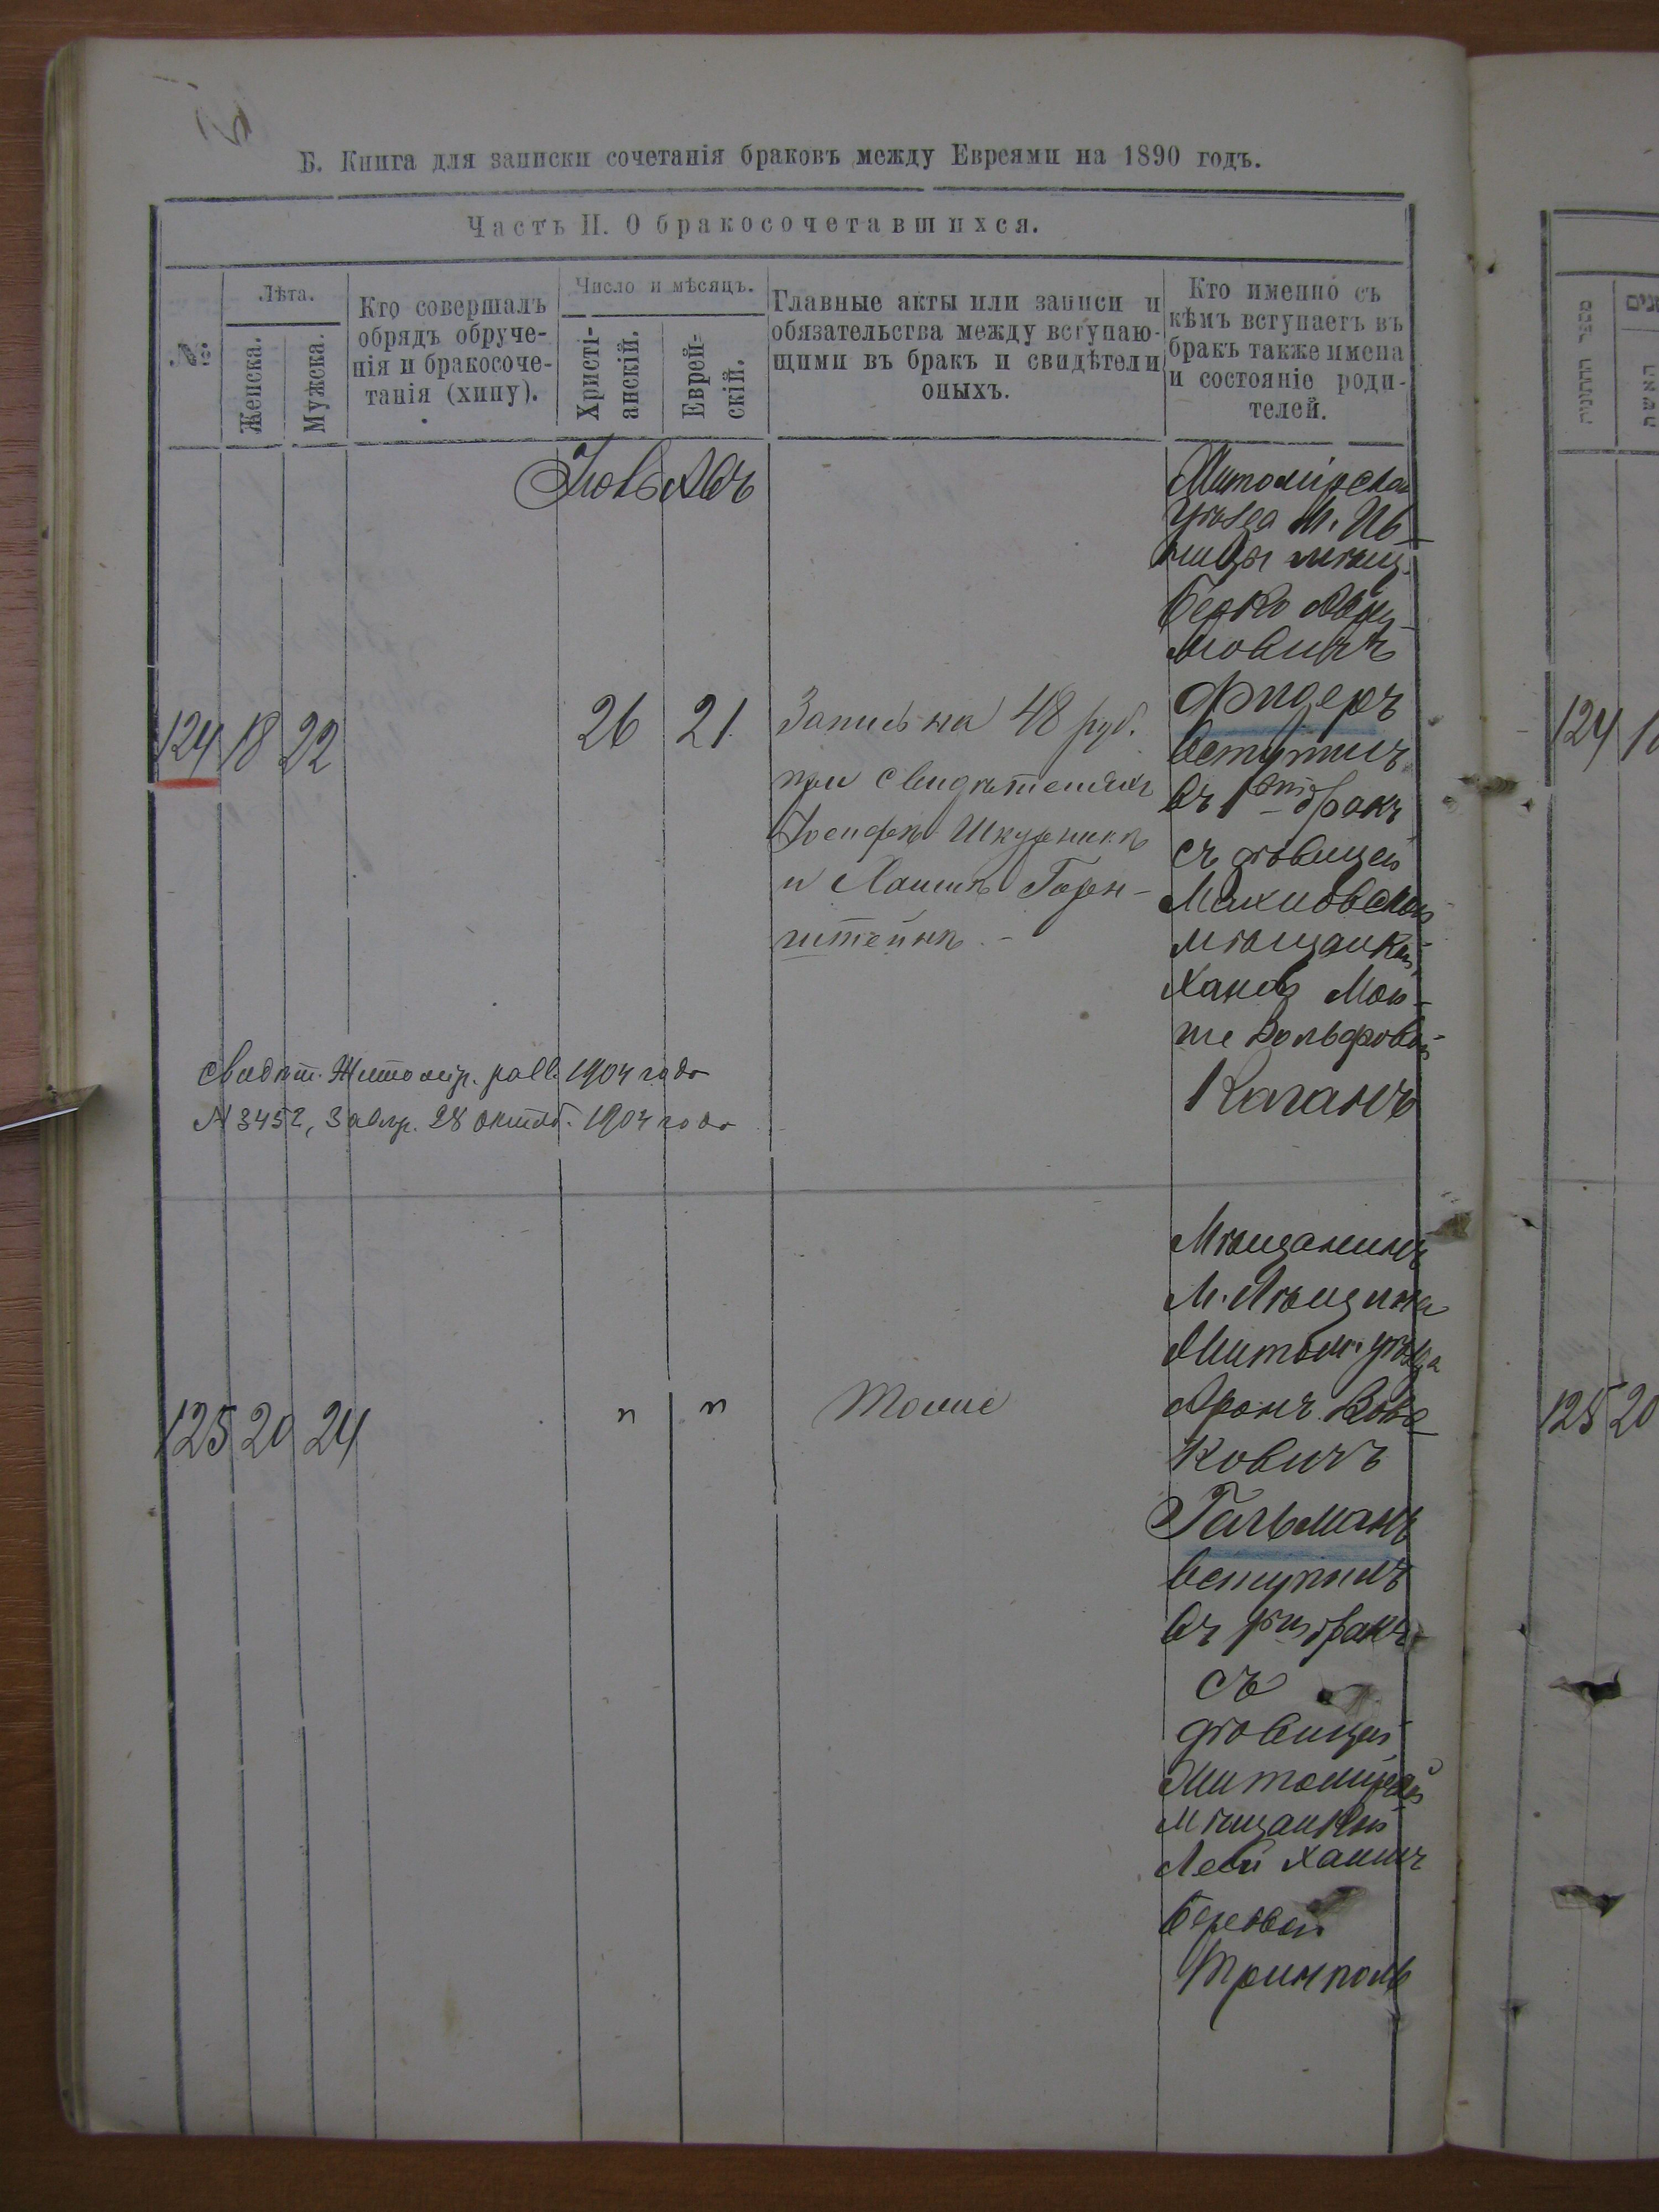 Б. Книга для записки сочетанія браковъ между Евреями на 1890 годъ.
Часть II. О бракосочетавшихся.
№
Лѣта.
Женска.
Мужска.
Кто совершалъ
обрядъ обруче-
нія и бракосоче-
танія (хипу).
Число и мѣсяцъ.
Христі-
анскій.
Еврей-
скій.
Главные акты или записи и
обязательства между вступаю-
щими въ бракъ и свидѣтели
оныхъ.
Кто именно съ
кѣмъ вступаетъ въ
бракъ также имена
и состояніе роди-
телей.
Іюль Авъ
124 18 22
26 21
Запись на 48 руб.
при свидѣтеляхъ
Іосифѣ Шкурникѣ
и Хаимѣ Горен-
штейнѣ. -
Житомірскаго
уѣзда м. Ив-
ницы мѣщ.
Берко
мовичъ
Фидеръ
вступилъ
въ 1 бракъ
съ дѣвицею
Махновскою
мѣщанкой
Ханов Мои-
ше Вольфовой
Каганъ
Свидѣт. Житомір. равв. 1904 года
№ 3452, Завѣр. 28 октяб. 1904 года
125 20 24
" "
Тоже
Мѣщанинъ
М. Лѣщина
Житом. уѣзда
Аронъ Вов-
ковичъ
Гальманъ
вступилъ
въ бракъ
съ
дѣвицей
Житомірской
мѣщанкой
Леей Хаимъ
Берковой
Тринполь
מספר החתונה
האשה
124
125 20